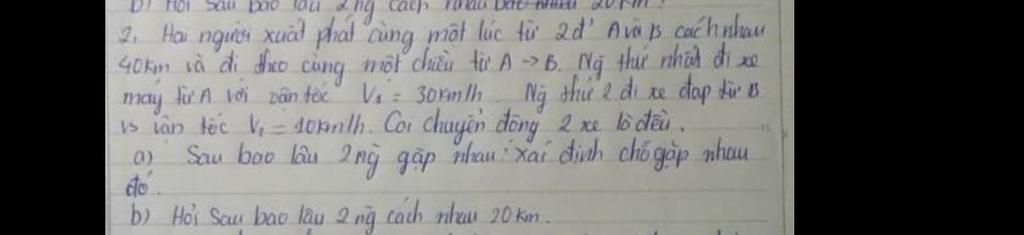 b) Hỏi sau bao lâu 2 ng cách nhau 20 km ?
2, Hai người xuất phát cùng một lúc từ 2đ' A và B cách nhau
40km và đi theo cùng một chiều từ A → B. Ng thứ nhất đi xe
máy từ A với vận tốc V₁ = 30km/h Ng thứ 2 đi xe đạp từ B
vs vận tốc V₂ = 10km/h. Coi chuyển động 2 xe là đều.
a) Sau bao lâu 2 ng gặp nhau xác định chỗ gặp nhau
đó.
b) Hỏi sau bao lâu 2 ng cách nhau 20 km.